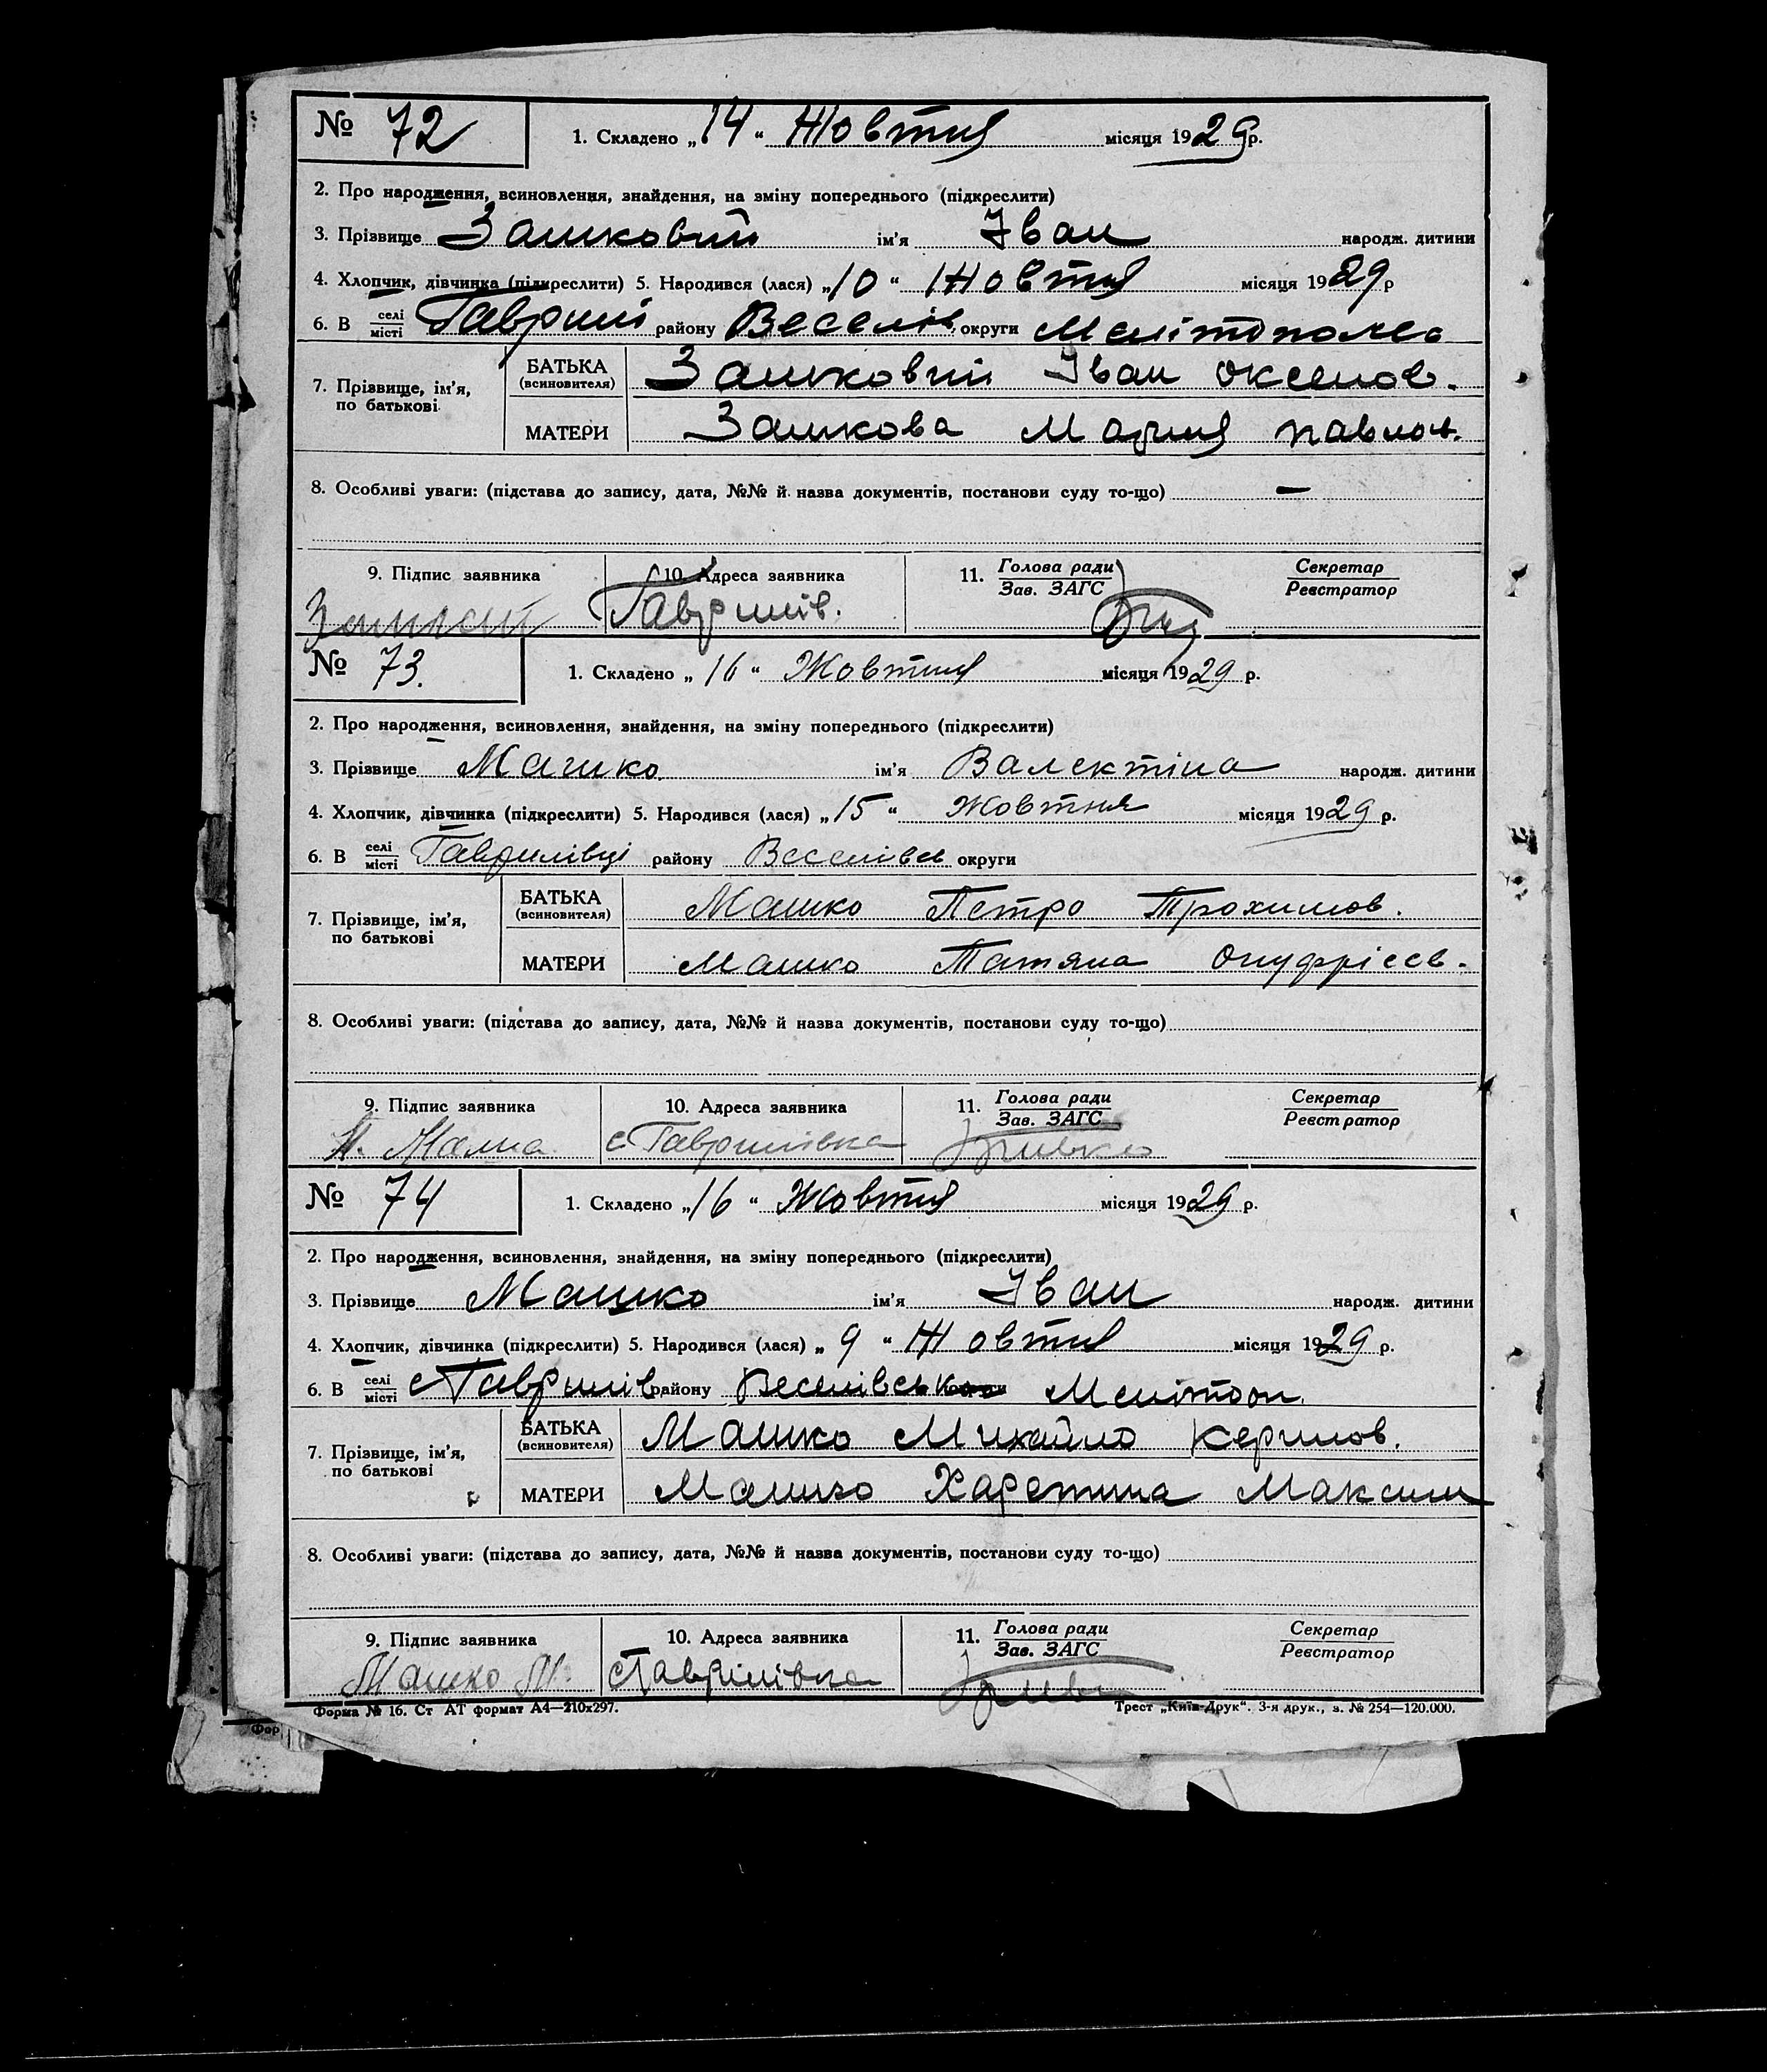 № 72 1. Складено „14“ Жовтня місяця 1929р.
2. Про народження, всиновлення, знайдення, на зміну попереднього (підкреслити)
3. Прізвище Зашковий ім'я Іван народж. дитини
4. Хлопчик, дівчинка (підкреслити) 5. Народився (лася) „10“ Жовтня місяця 1929р
6. В селі/місті Гаврил району Веселів. округи Мелітопольс
7. Прізвище, ім'я, по батькові БАТЬКА (всиновителя) Зашковий Іван Оксенов.
МАТЕРИ Зашкова Мария Павлов.
8. Особливі уваги: (підстава до запису, дата, №№ й назва документів, постанови суду то-що) —
9. Підпис заявника 10. Адреса заявника 11. Голова ради/Зав. ЗАГС Секретар/Реєстратор
Гаврилів.
№ 73. 1. Складено „16“ Жовтня місяця 1929 р.
2. Про народження, всиновлення, знайдення, на зміну попереднього (підкреслити)
3. Прізвище Машко ім'я Валектіна народж. дитини
4. Хлопчик, дівчинка (підкреслити) 5. Народився (лася) „15“ Жовтня місяця 1929 р.
6. В селі/місті Гаврилівці району Веселівсь округи
7. Прізвище, ім'я, по батькові БАТЬКА (всиновителя) Машко Петро Трохимов.
МАТЕРИ Машко Татяна Онуфрієв.
8. Особливі уваги: (підстава до запису, дата, №№ й назва документів, постанови суду то-що)
9. Підпис заявника 10. Адреса заявника 11. Голова ради/Зав. ЗАГС Секретар/Реєстратор
с Гаврилівка
№ 74 1. Складено „16“ Жовтня місяця 1929 р.
2. Про народження, всиновлення, знайдення, на зміну попереднього (підкреслити)
3. Прізвище Машко ім'я Іван народж. дитини
4. Хлопчик, дівчинка (підкреслити) 5. Народився (лася) „9“ Жовтня місяця 1929 р.
6. В селі/місті с Гаврилів району Веселівськ Мелітоп.
7. Прізвище, ім'я, по батькові БАТЬКА (всиновителя) Машко Михайло Керилов.
МАТЕРИ Машко Харетина Максим
8. Особливі уваги: (підстава до запису, дата, №№ й назва документів, постанови суду то-що)
9. Підпис заявника 10. Адреса заявника 11. Голова ради/Зав. ЗАГС Секретар/Реєстратор
Машко М. с Гаврилівка
Форма № 16. Ст АТ формат А4—210х297. Трест „Київ-Друк“. 3-я друк., з. № 254—120.000.
Фор